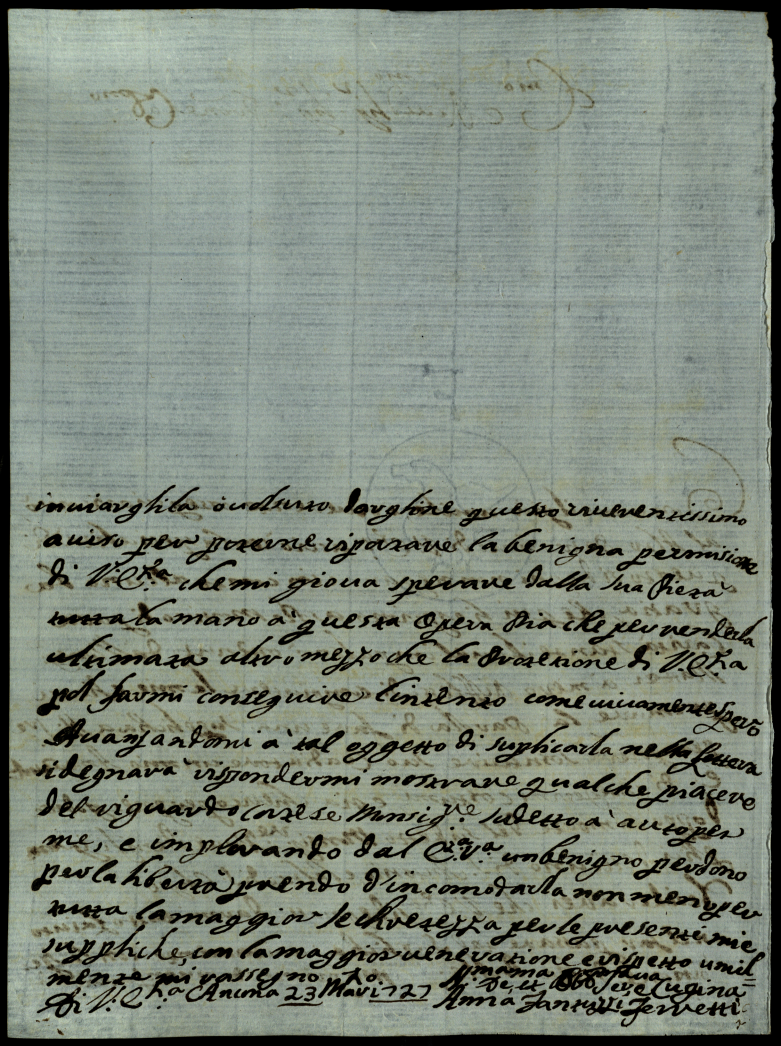 inviarghila ò volsuto dorghine questo riverentissimo
aviso per poterne riportare la benigna permisione
di V. E.za che mi giova sperare dalla sua Pietà
tutta la mano à questa Opera Pia che per renderla
ultimata altro mezzo che la Protetione di V. E.za
pol farmi conseguire l'intento come vivamente spero
Avanzandomi à tal oggetto di suplicarla nella lettera
si degnarà rispondermi mostrare qualche piacere
del riguardo cortese Monsig.re sudetto à auto per
me, e implorando dal E.za V.a un benigno perdono
per la libertà prendo d'incomodarla non meno per
tutta la maggior secretezza per le presenti mie
suppliche con la maggior veneratione e rispetto umil=
mente mi rassegno
Di V. E.za Ancona 23 Mar.zo 1727
Serva e Cugina
Anna Fantuzzi Ferretti